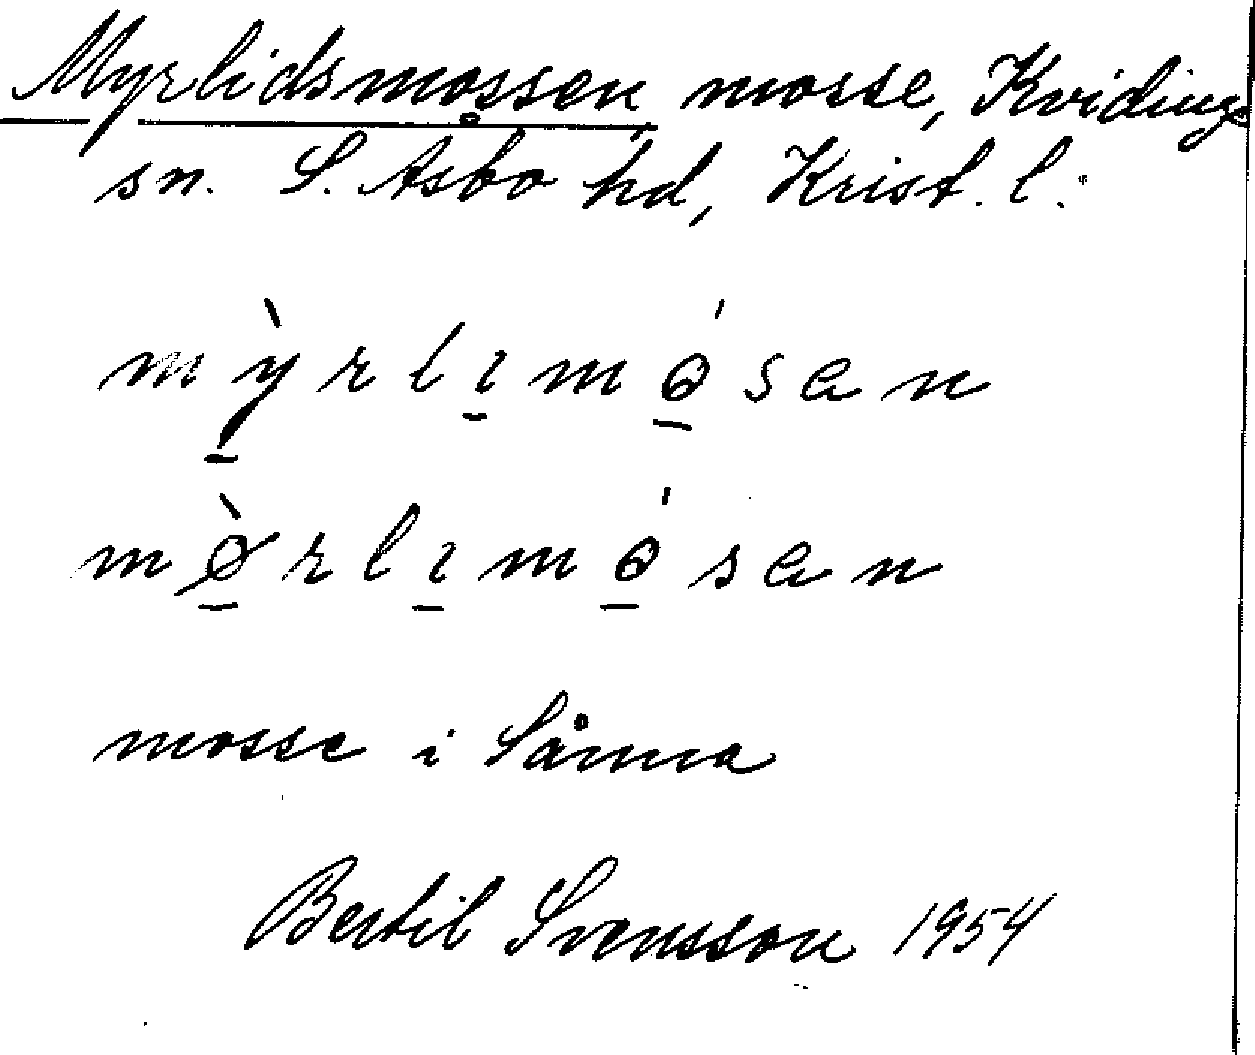 Myrlidsmossen mosse, Kvidinge
sn. S. Åsbo hd, Krist. l.
mỳrlımósen
mø̀rlımósen
mosse i Sånna
Bertil Svensson 1954